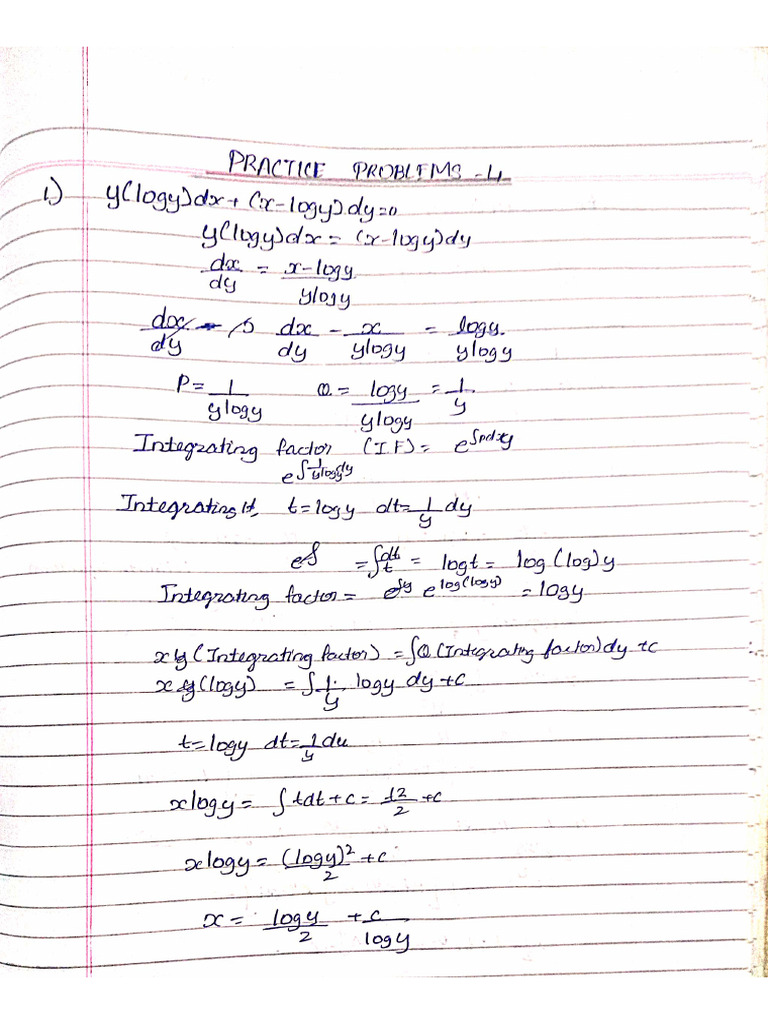 PRACTICE PROBLEMS -4
1) y(logy)dx + (x-logy)dy=0
y(logy)dx = (x-logy)dy
dx/dy = x-logy/ylogy
dx/dy - dx/dy - x/ylogy = logy/ylogy
P= 1/ylogy Q= logy/ylogy = 1/y
Integrating factor (IF)= e^∫pdy
e^∫1/ylogy dy
Integrating it, t=logy dt= 1/y dy
e^∫ = ∫dt/t = logt = log(log)y
Integrating factor = e^log(logy) = logy
x (Integrating factor) = ∫Q(Integrating factor)dy+c
x (logy) = ∫1/y logy dy+c
t=logy dt= 1/y du
xlogy= ∫tdt+c= t2/2 +c
xlogy= (logy)²/2 +c
x= logy/2 + c/logy